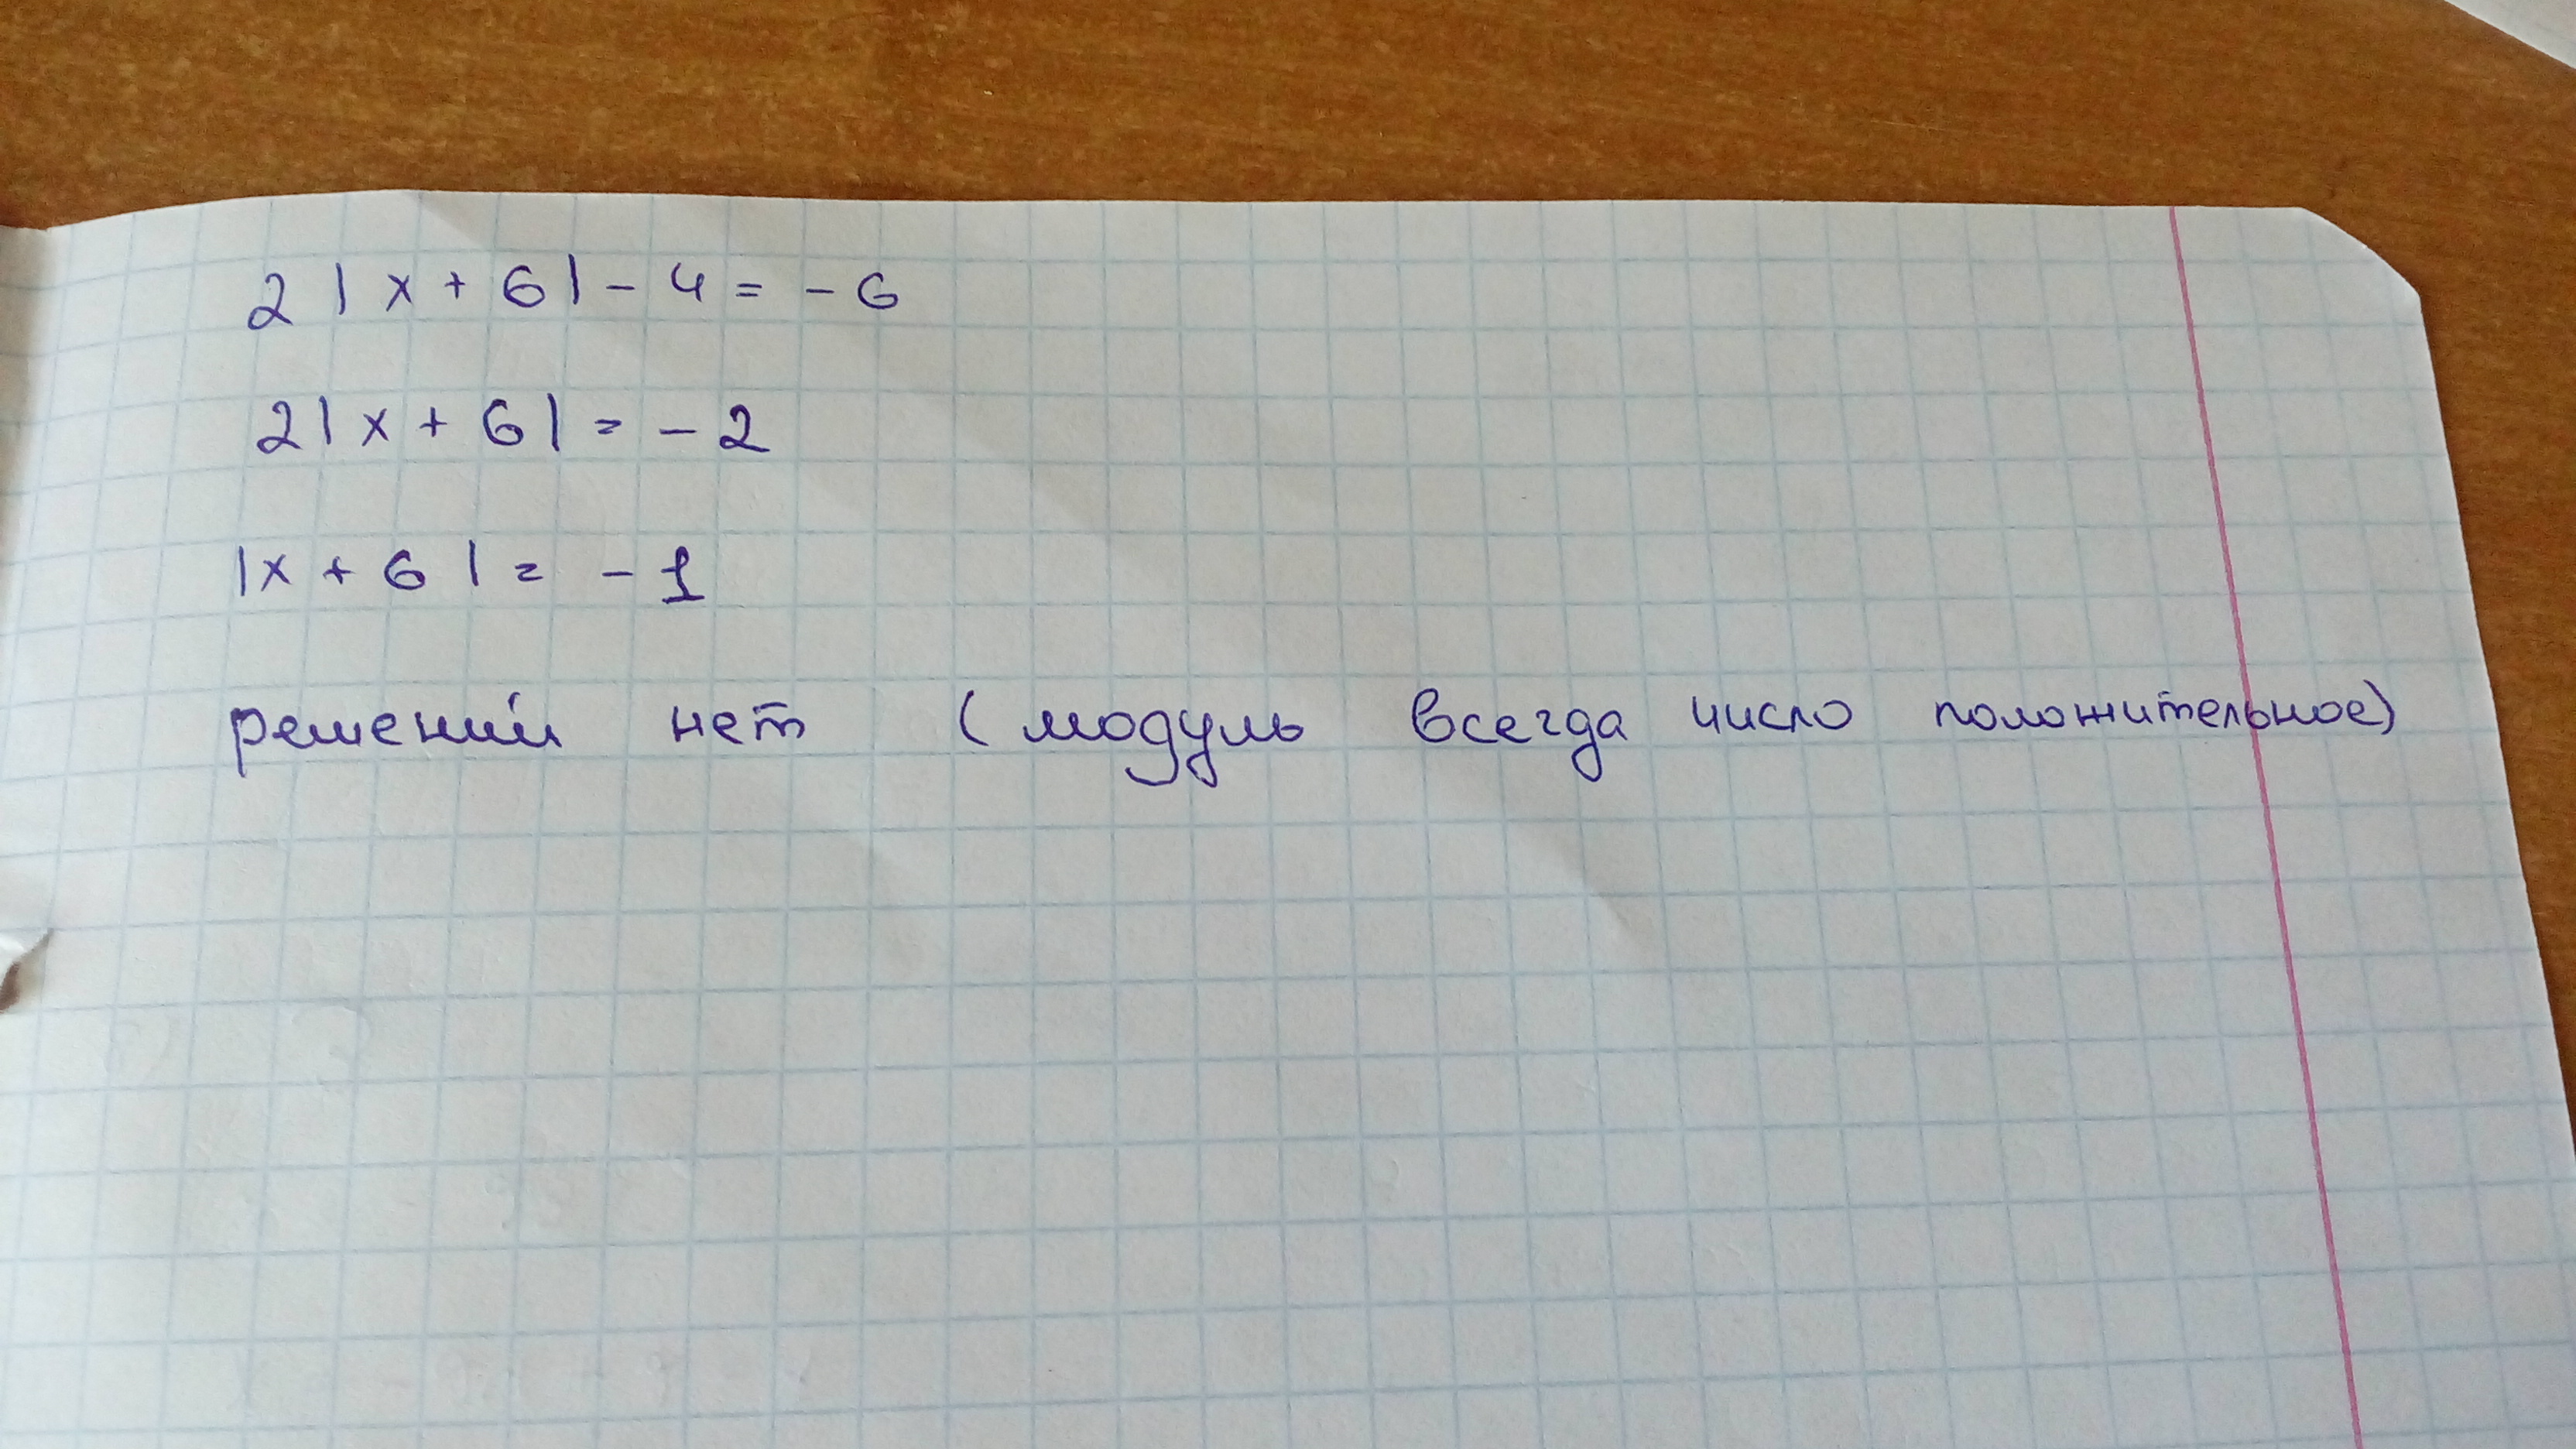 2 | x + 6 | - 4 = - 6
2 | x + 6 | = - 2
| x + 6 | = - 1
решений нет ( модуль всегда число положительное)